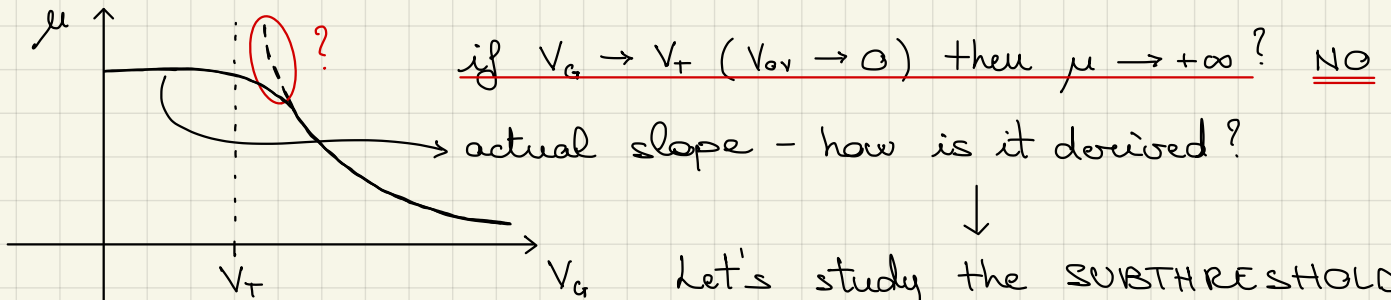 μ
?
if V_G → V_T (V_OV → 0) then μ → +∞? NO
actual slope - how is it derived?
V_T V_G Let's study the SUBTHRESHOLD